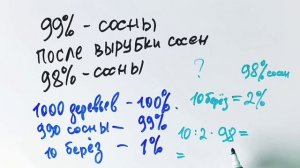 99% - сосны
после вырубки сосен
98% - сосны
1000 деревьев - 100%
990 сосны - 99%
10 берёз - 1%
?
98% сосен
10 берёз = 2%
10 : 2 · 98 =
=